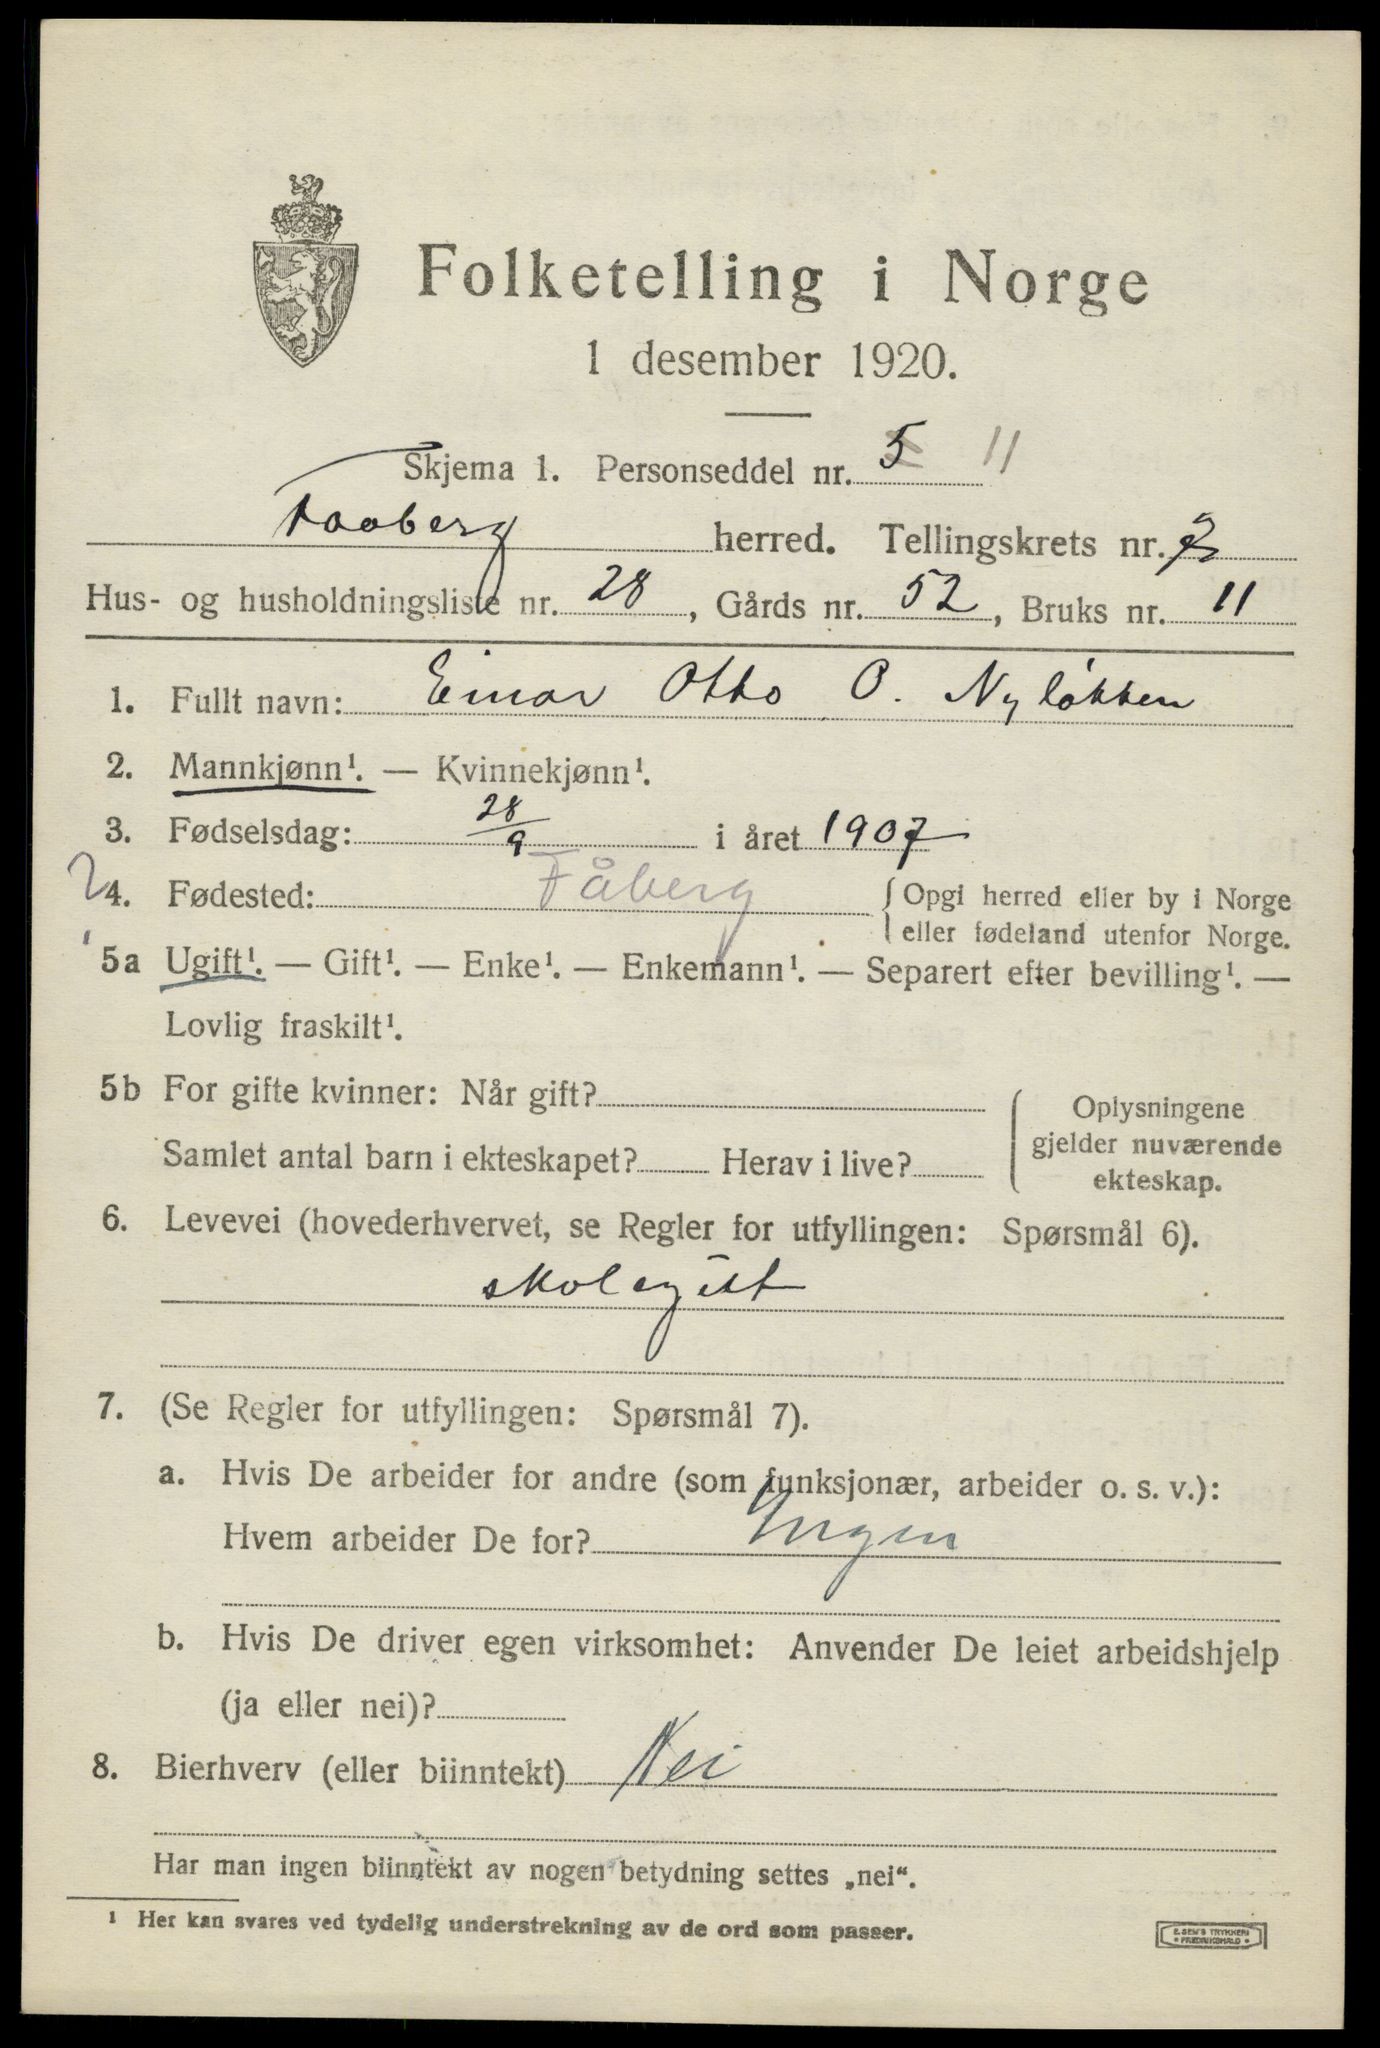 Folketelling i Norge
1 desember 1920.
Skjema 1. Personseddel nr. 5 11
Faaberg herred. Tellingskrets nr. 2
Hus- og husholdningsliste nr. 28, Gårds nr. 52, Bruks nr. 11
1. Fullt navn: Einar Otto O. Nyløkken
2. Mannkjønn¹. — Kvinnekjønn¹.
3. Fødselsdag: 28/9 i året 1907
2
4. Fødested: Fåberg { Opgi herred eller by i Norge
eller fødeland utenfor Norge.
5a Ugift¹. — Gift¹. — Enke¹. — Enkemann¹. — Separert efter bevilling¹. —
Lovlig fraskilt¹.
5b For gifte kvinner: Når gift?
Samlet antal barn i ekteskapet? Herav i live?
Oplysningene
gjelder nuværende
ekteskap.
6. Levevei (hovederhvervet, se Regler for utfyllingen: Spørsmål 6).
skolegut
7. (Se Regler for utfyllingen: Spørsmål 7).
a. Hvis De arbeider for andre (som funksjonær, arbeider o. s. v.):
Hvem arbeider De for? Ingen
b. Hvis De driver egen virksomhet: Anvender De leiet arbeidshjelp
(ja eller nei)?
8. Bierhverv (eller biinntekt) Nei
Har man ingen biinntekt av nogen betydning settes „nei“.
¹ Her kan svares ved tydelig understrekning av de ord som passer.
E. SEM'S TRYKKERI
• FREDRIKSHALD •